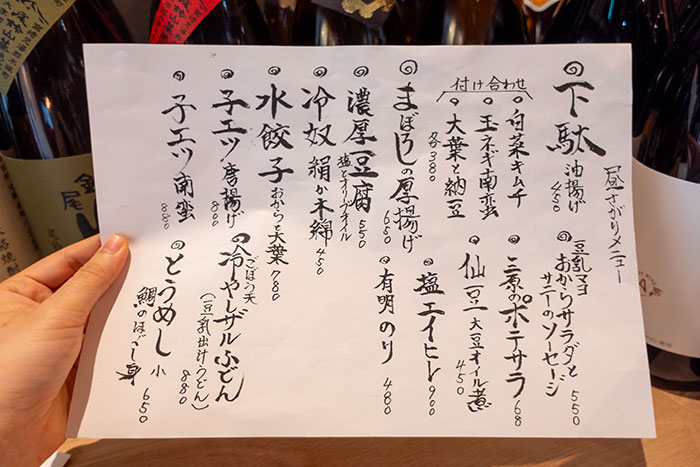 昼さがりメニュー
下駄
油揚げ
450
付け合わせ
白菜キムチ
玉ネギ南蛮
大葉と納豆
各380
まぼろしの厚揚げ
650
濃厚豆腐
塩とオリーブオイル
550
冷奴
絹か木綿
450
水餃子
おからと大葉
780
子エツ唐揚げ
800
子エツ南蛮
880
豆乳マヨ
おからサラダと
サニーのソーセージ
550
三原のポテサラ
68
仙豆
大豆オイル煮
450
塩エイヒレ
900
有明のり
480
ごぼう天
冷やしザルふどん
(豆乳出汁・うどん)
880
とうめし
鯛のほぐし身
小
650